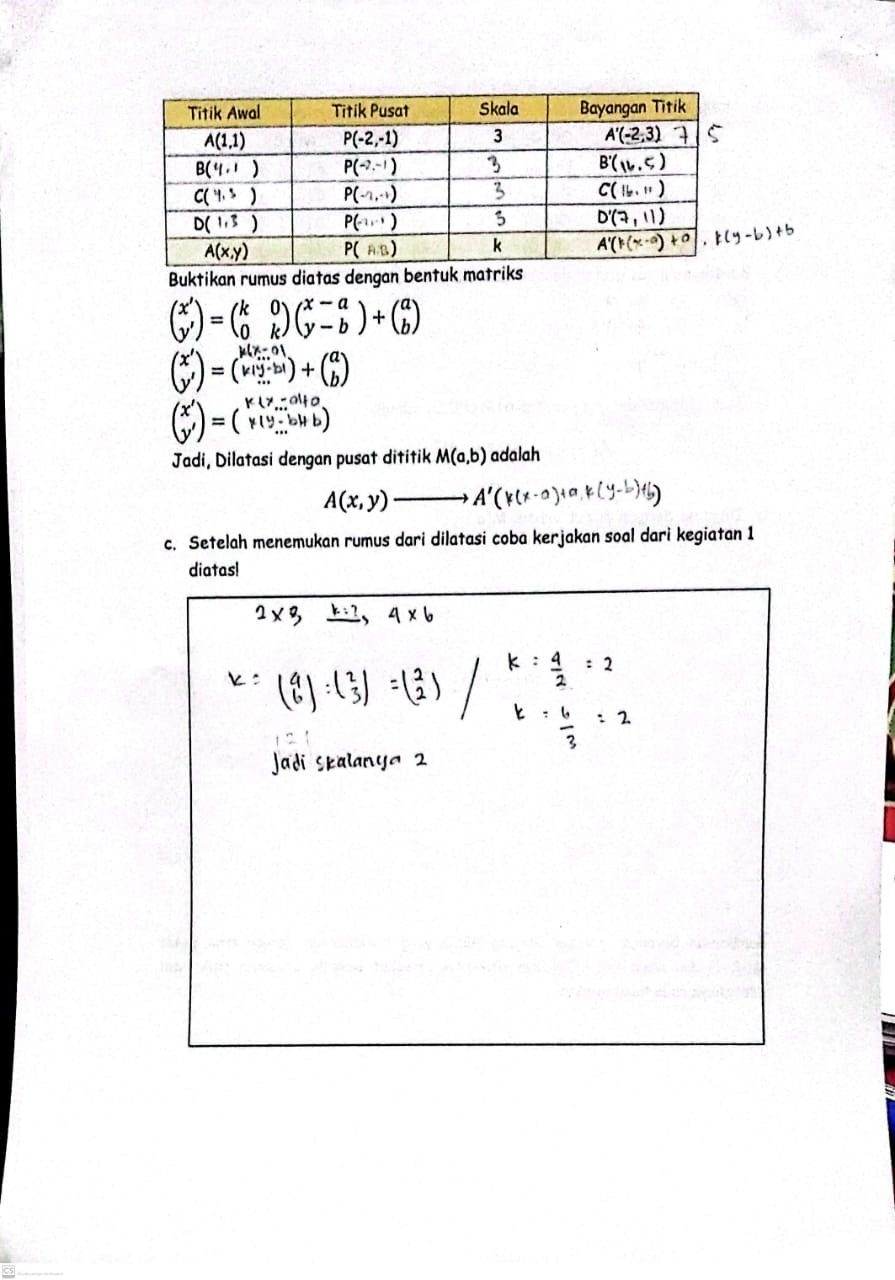 Titik Awal Titik Pusat Skala Bayangan Titik
A(1,1) P(-2,-1) 3 A'(-2,3) 7 5
B(4,1) P(-2,-1) 3 B'(16,5)
C(4,3) P(-2,-1) 3 C(16,11)
D(1,3) P(-2,-1) 3 D'(7,11)
A(x,y) P(A,B) k A'(k(x-a)+a, k(y-b)+b
Buktikan rumus diatas dengan bentuk matriks
(x' y') = (k 0 0 k)(x-a y-b) + (a b)
(x' y') = (k(x-a) ... k(y-b) ...) + (a b)
(x' y') = (k(x-a)+a ... k(y-b)+b ...)
Jadi, Dilatasi dengan pusat dititik M(a,b) adalah
A(x,y) → A'(k(x-a)+a, k(y-b)+b)
c. Setelah menemukan rumus dari dilatasi coba kerjakan soal dari kegiatan 1
diatas!
2 x 3 k:?, 4 x 6
k = (4 6) : (2 3) = (2 2) / k : 4/2 : 2
k : 6/3 : 2
Jadi skalanya 2
CS